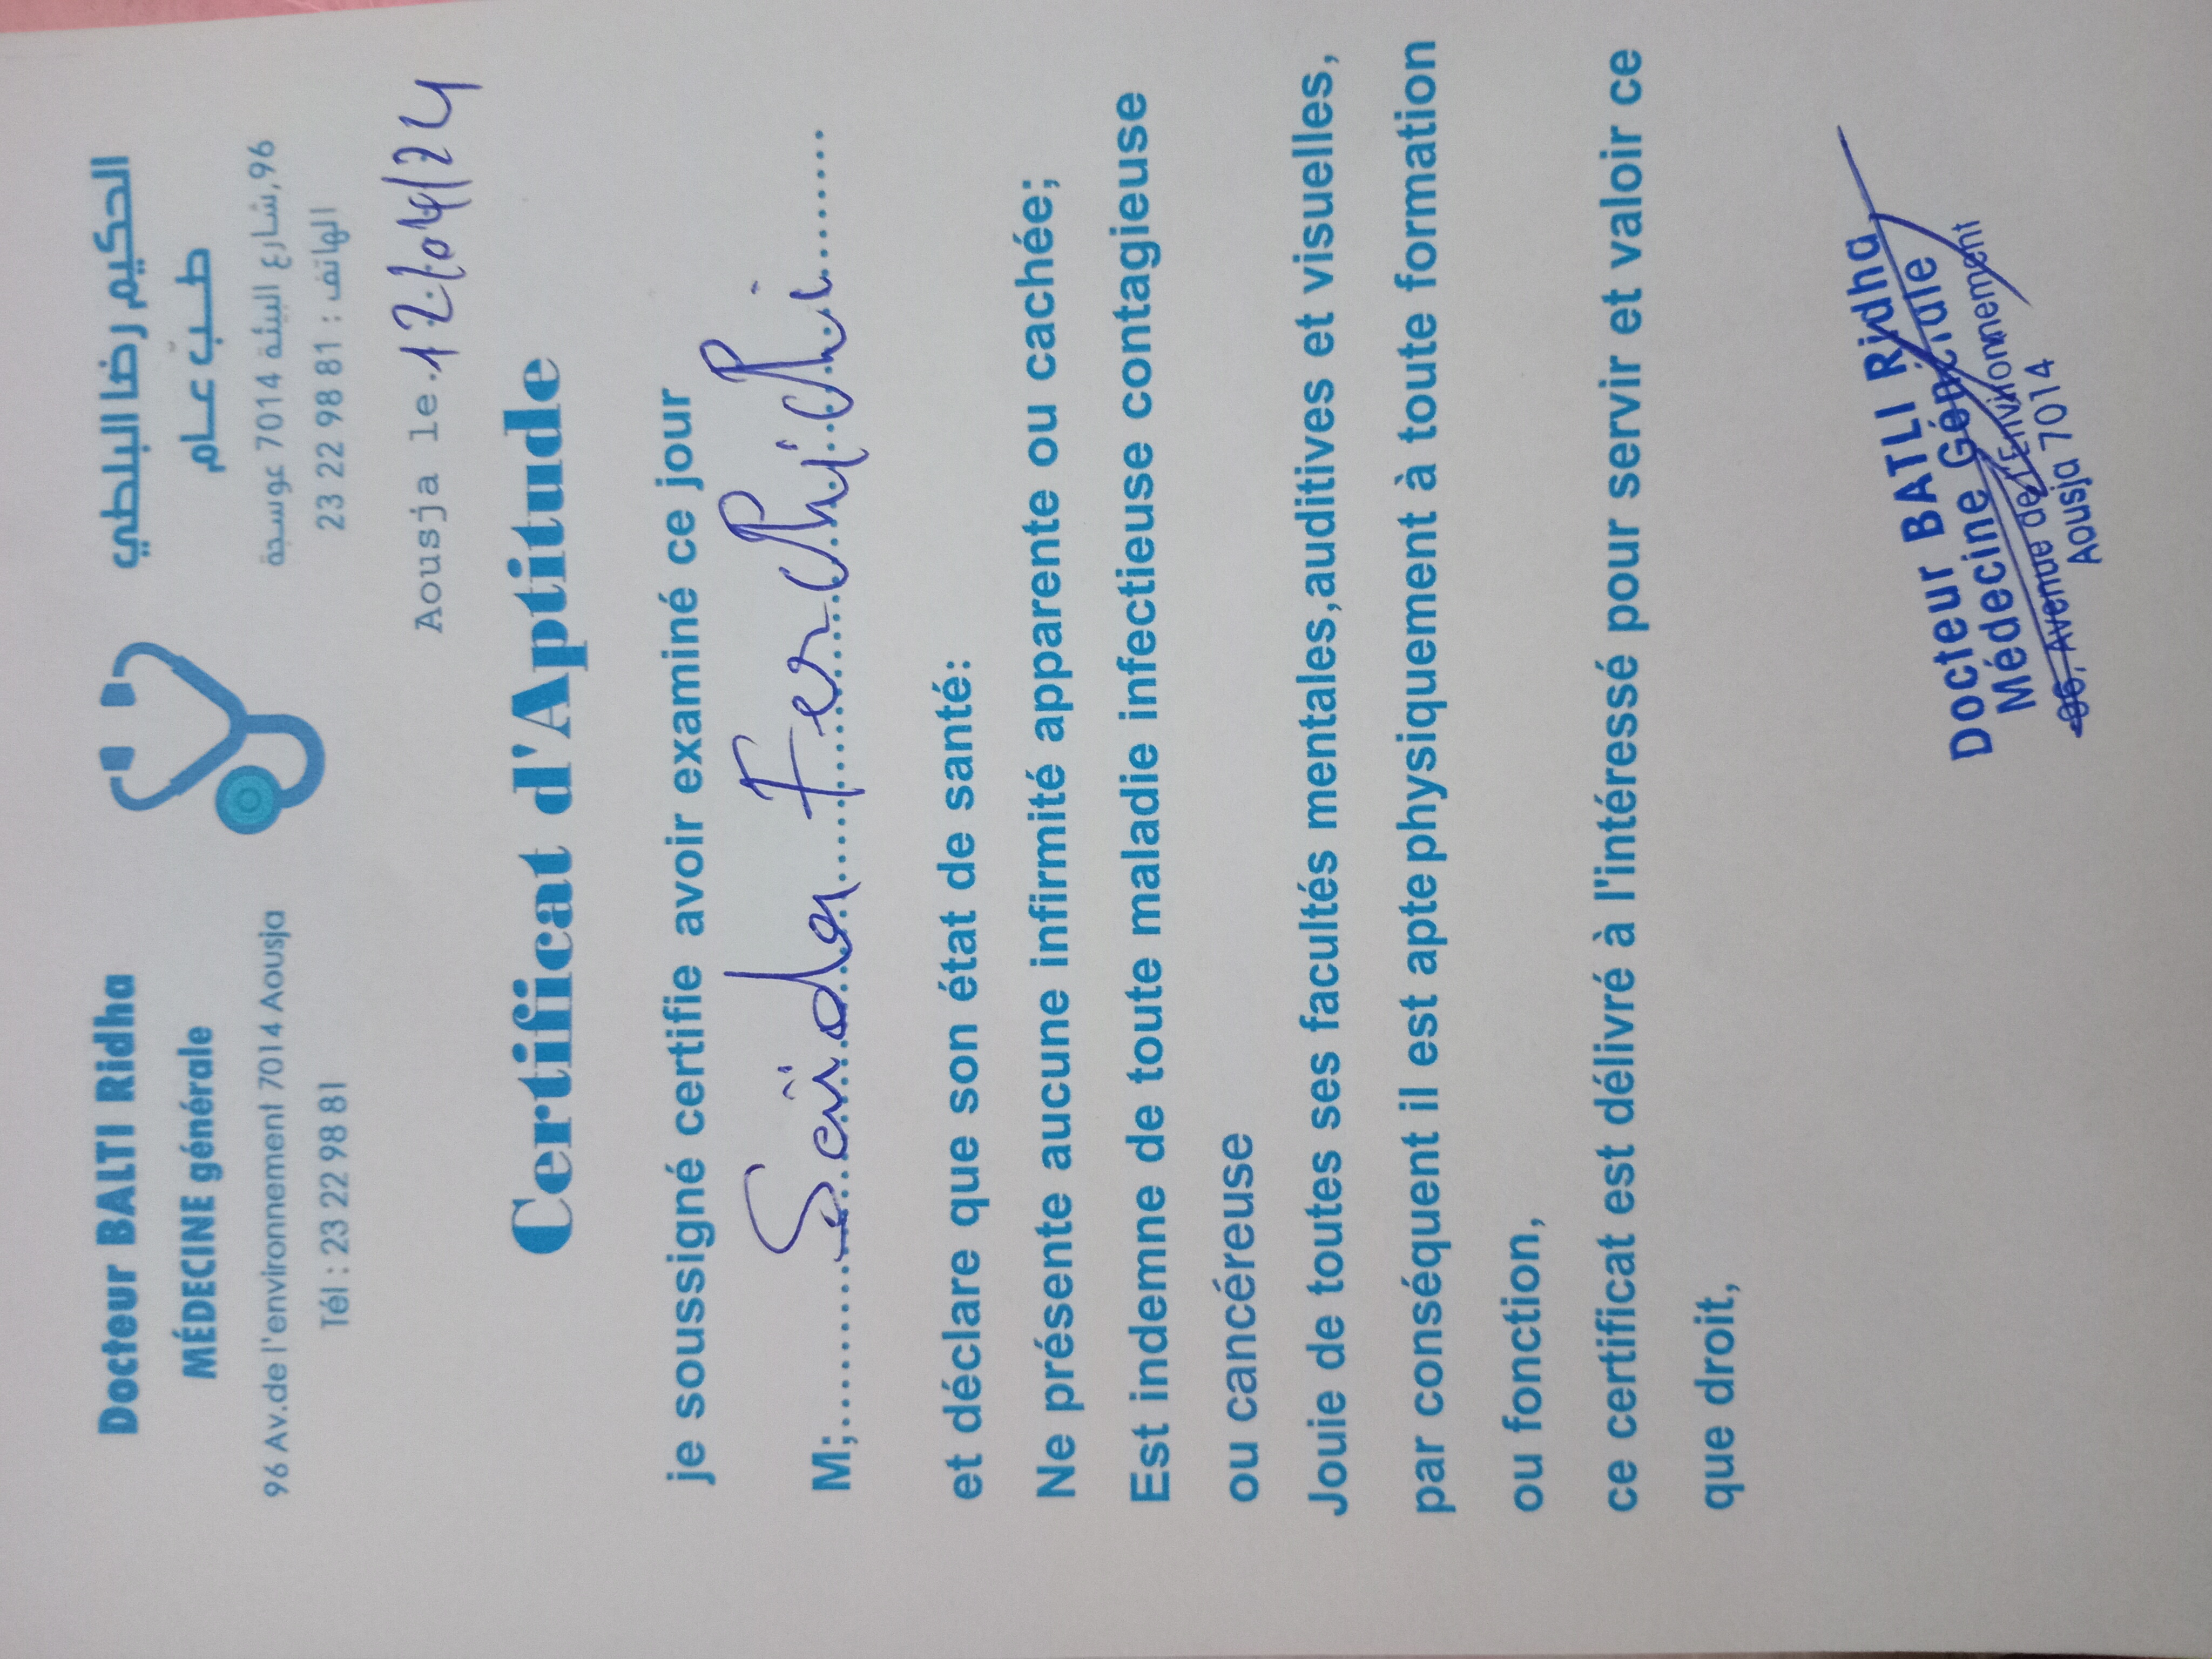 Docteur BALTI Ridha
MÉDECINE générale
96 Av.de l'environnement 7014 Aousja
Tél : 23 22 98 81
الحكيم رضا البلطي
طب عام
96,شارع البيئة 7014 عوسجة
الهاتف : 81 98 22 23
Aousja le 12/04/24
Certificat d'Aptitude
je soussigné certifie avoir examiné ce jour
M;......... Saida Ferchichi .........
et déclare que son état de santé:
Ne présente aucune infirmité apparente ou cachée;
Est indemne de toute maladie infectieuse contagieuse
ou cancéreuse
Jouie de toutes ses facultés mentales,auditives et visuelles,
par conséquent il est apte physiquement à toute formation
ou fonction,
ce certificat est délivré à l'intéressé pour servir et valoir ce
que droit,
Docteur BATLI Ridha
Médecine Générale
96, Avenue de L'Environnement
Aousja 7014